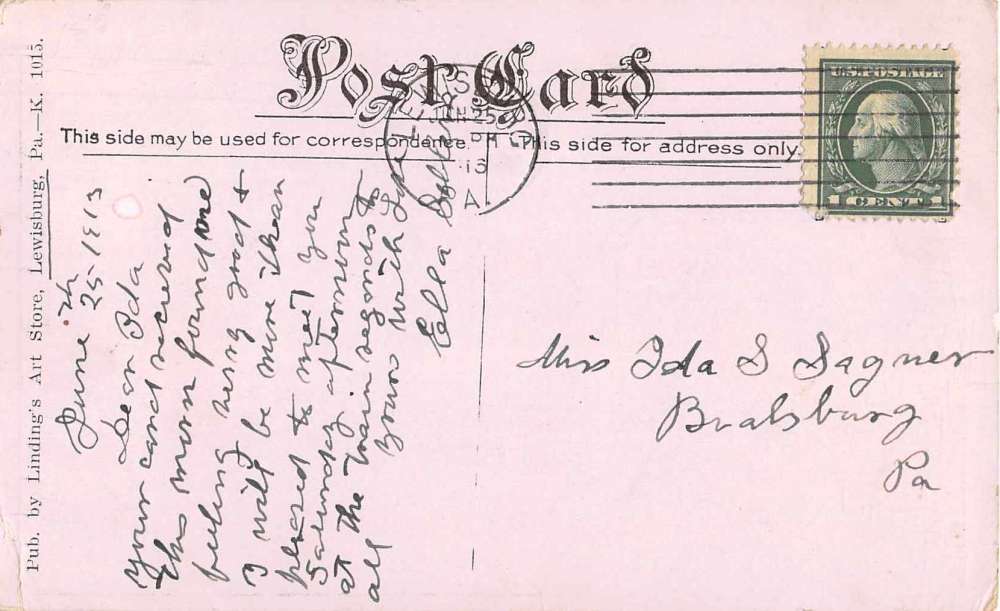 Post Card
This side may be used for correspondence.
This side for address only
Pub. by Linding's Art Store, Lewisburg, Pa.—K. 1015.
June 25th 1913
Dear Ida
Your card recieved
this morn found me
feeling very good &
I will be more than
pleased to meet you
Saturday afternoon
at the train regards to
all yours with Love
Ella
U.S. POSTAGE
1 CENT 1
JUN 25
PM
13
A.
Miss Ida S Sagner
Boalsburg
Pa